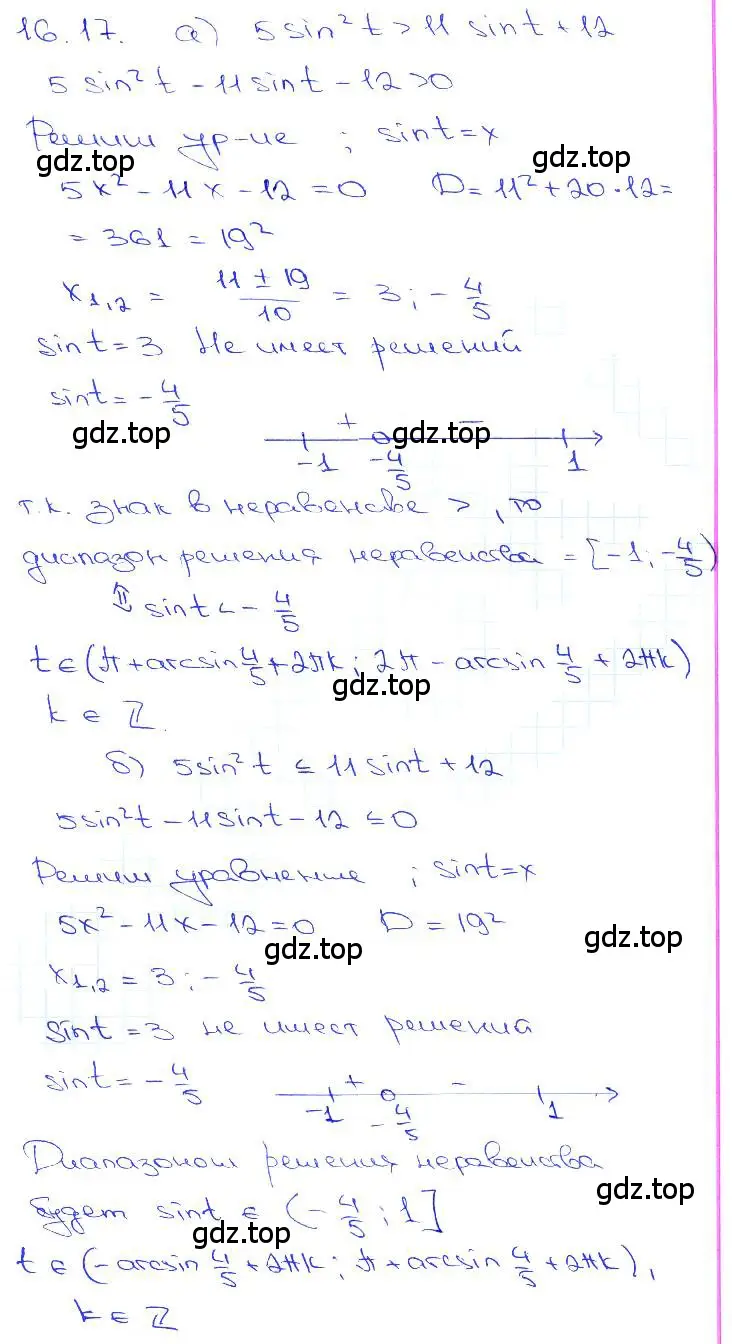 16.17. а) 5 sin² t > 11 sin t + 12
5 sin² t - 11 sin t - 12 > 0
Решим ур-ие ; sin t = x
gdz.top gdz.top
5x² - 11x - 12 = 0 D = 11² + 20·12 =
= 361 = 19²
x₁,₂ = (11 ± 19)/10 = 3; -4/5
sin t = 3 Не имеет решений
sin t = -4/5
gdz.top gdz.top
+ -
-1 -4/5 1
т.к. знак в неравенстве >, то
диапазон решения неравенства = [-1; -4/5)
⇕ sin t < -4/5
t ∈ (π + arcsin 4/5 + 2πk; 2π - arcsin 4/5 + 2πk)
gdz.top
k ∈ ℤ.
б) 5 sin² t ≤ 11 sin t + 12
5 sin² t - 11 sin t - 12 ≤ 0
Решим уравнение ; sin t = x
5x² - 11x - 12 = 0 D = 19²
gdz.top gdz.top
x₁,₂ = 3; -4/5
sin t = 3 не имеет решений
sin t = -4/5
+ -
-1 -4/5 1
Диапазоном решения неравенства
gdz.top
будет sin t ∈ (-4/5; 1]
gdz.top
t ∈ (-arcsin 4/5 + 2πk; π + arcsin 4/5 + 2πk),
k ∈ ℤ